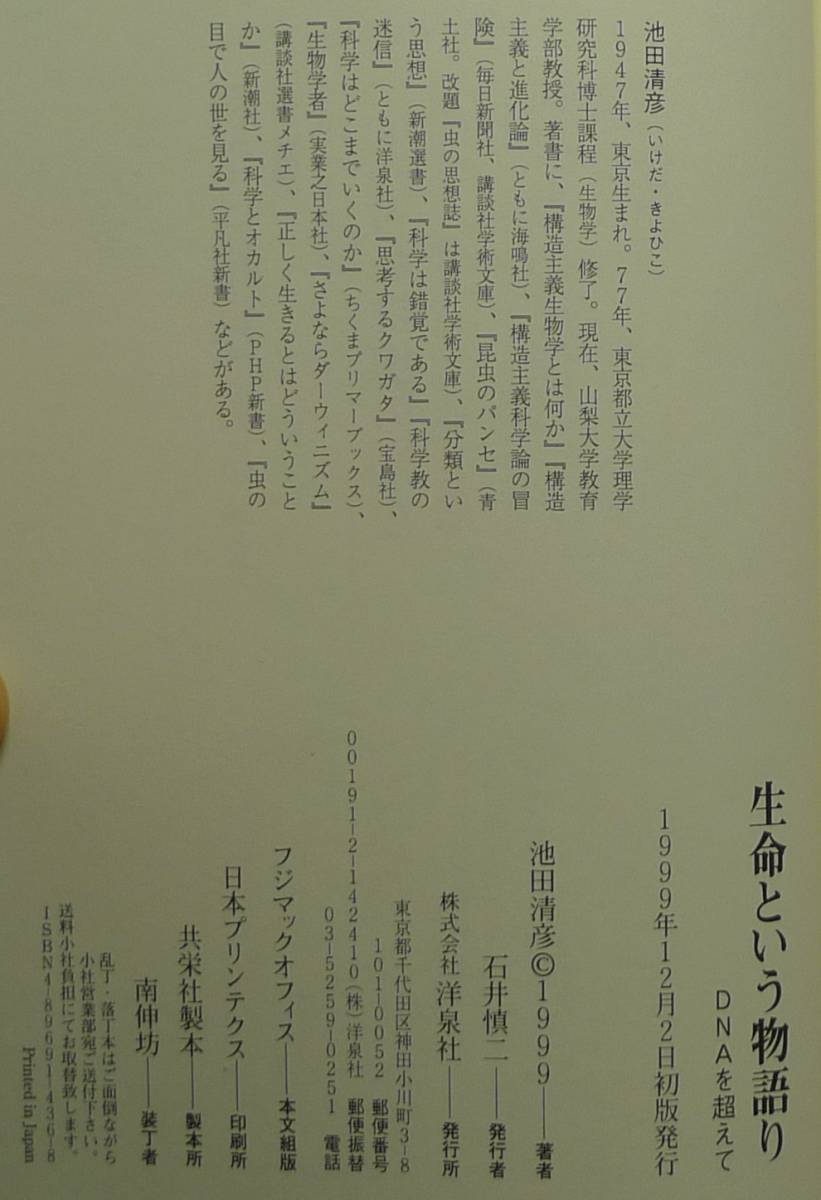 池田清彦（いけだ・きよひこ）
1947年、東京生まれ。77年、東京都立大学理学
研究科博士課程（生物学）修了。現在、山梨大学教育
学部教授。著書に、『構造主義生物学とは何か』『構造
主義と進化論』（ともに海鳴社）、『構造主義科学論の冒
険』（毎日新聞社、講談社学術文庫）、『昆虫のパンセ』（青
土社。改題『虫の思想誌』は講談社学術文庫）、『分類とい
う思想』（新潮選書）、『科学は錯覚である』『科学教の
迷信』（ともに洋泉社）、『思考するクワガタ』（宝島社）、
『科学はどこまでいくのか』（ちくまプリマーブックス）、
『生物学者』（実業之日本社）、『さよならダーウィニズム』
（講談社選書メチエ）、『正しく生きるとはどういうこと
か』（新潮社）、『科学とオカルト』（PHP新書）、『虫の
目で人の世を見る』（平凡社新書）などがある。
生命という物語り
DNAを超えて
1999年12月2日初版発行
池田清彦©1999――著者
石井慎二――発行者
株式会社 洋泉社――発行所
東京都千代田区神田小川町3-8
101-0052 郵便番号
00191-2-142410（株）洋泉社 郵便振替
03-5259-0251 電話
フジマックオフィス――本文組版
日本プリンテクス――印刷所
共栄社製本――製本所
南伸坊――装丁者
乱丁・落丁本はご面倒ながら
小社営業部宛ご送付下さい。
送料小社負担にてお取替致します。
ISBN4-89691-436-8
Printed in Japan